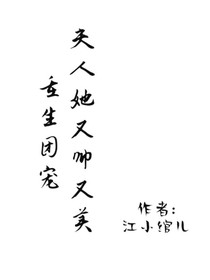 夫人她又帅又美
重生团宠
作者：
江小绾儿